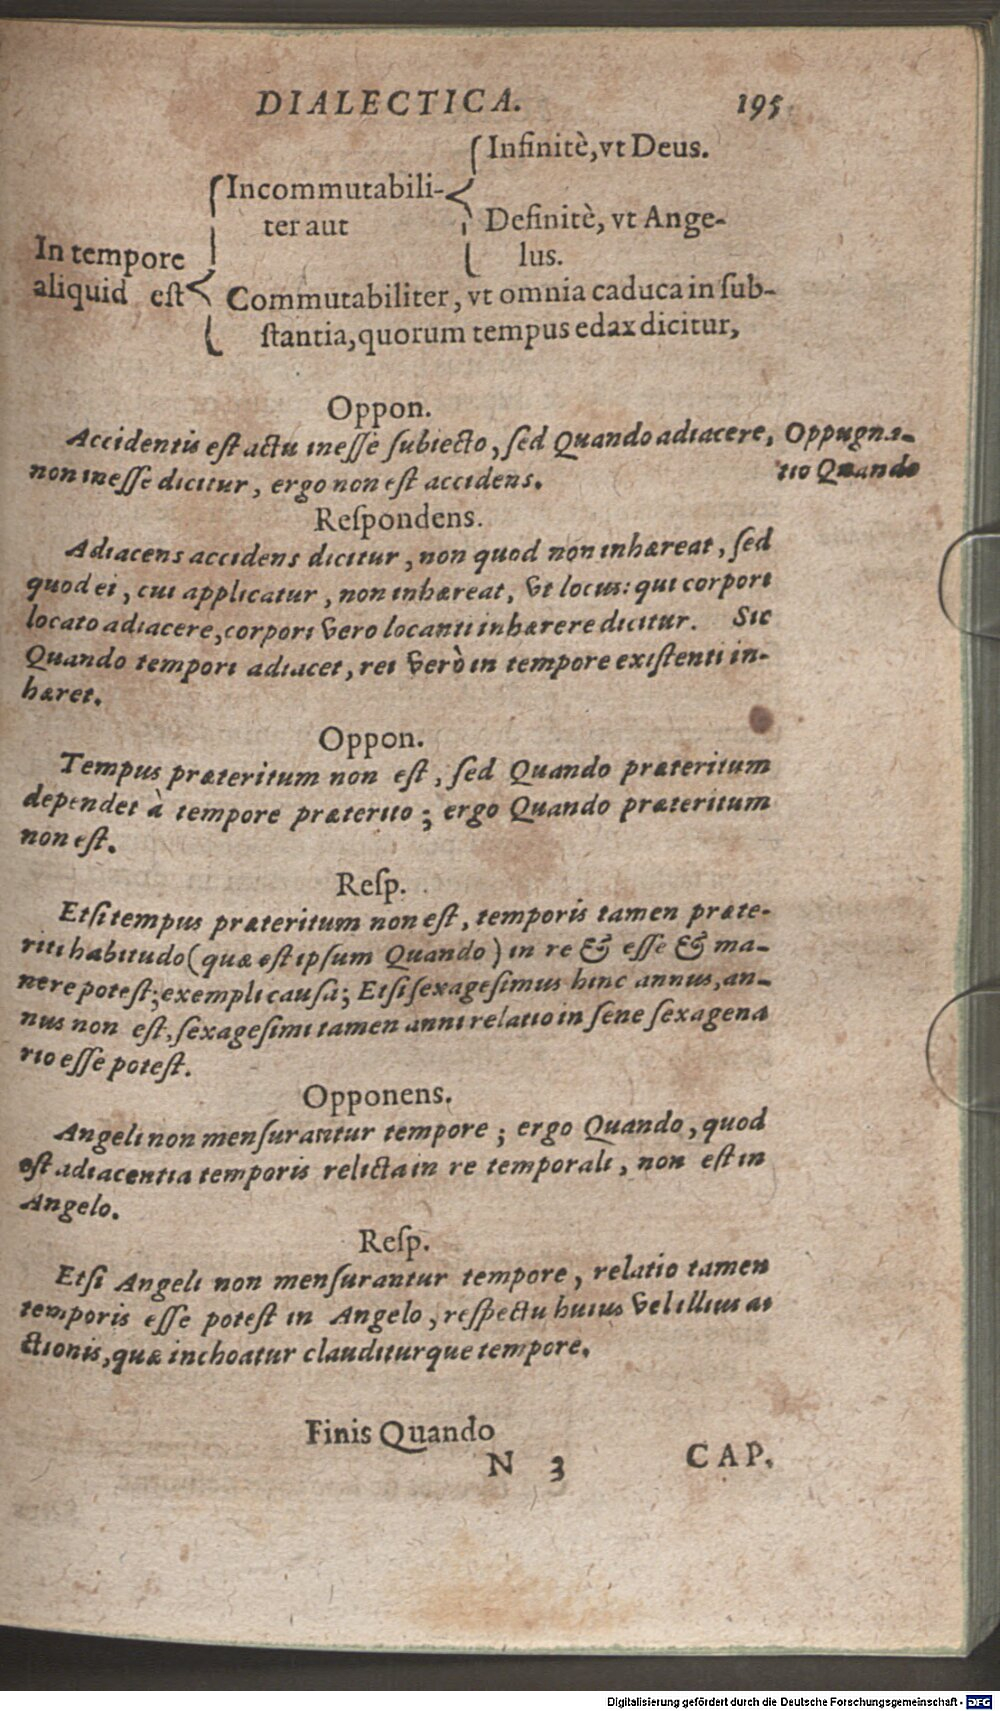 DIALECTICA. 195
Infinitè, vt Deus.
Incommutabili-
ter aut
Definitè, vt Ange-
lus.
In tempore
aliquid est
Commutabiliter, vt omnia caduca in sub-
stantia, quorum tempus edax dicitur,
Oppon.
Accidentis est actu inesse subiecto, sed Quando adiacere, Oppugna-
non inesse dicitur, ergo non est accidens. tio Quando
Respondens.
Adiacens accidens dicitur, non quod non inhæreat, sed
quod ei, cui applicatur, non inhæreat, vt locus: qui corpori
locato adiacere, corpori vero locanti inhærere dicitur. Sic
Quando tempori adiacet, rei verò in tempore existenti in-
hæret.
Oppon.
Tempus præteritum non est, sed Quando præteritum
dependet à tempore præterito; ergo Quando præteritum
non est.
Resp.
Etsi tempus præteritum non est, temporis tamen præte-
riti habitudo (quæ est ipsum Quando) in re & esse & ma-
nere potest; exempli causa; Etsi sexagesimus hinc annus, an-
nus non est, sexagesimi tamen anni relatio in sene sexagena
rio esse potest.
Opponens.
Angeli non mensurantur tempore; ergo Quando, quod
est adiacentia temporis relicta in re temporali, non est in
Angelo.
Resp.
Etsi Angeli non mensurantur tempore, relatio tamen
temporis esse potest in Angelo, respectu huius vel illius a
ctionis, quæ inchoatur clauditurque tempore.
Finis Quando
N 3 CAP.
Digitalisierung gefördert durch die Deutsche Forschungsgemeinschaft - DFG